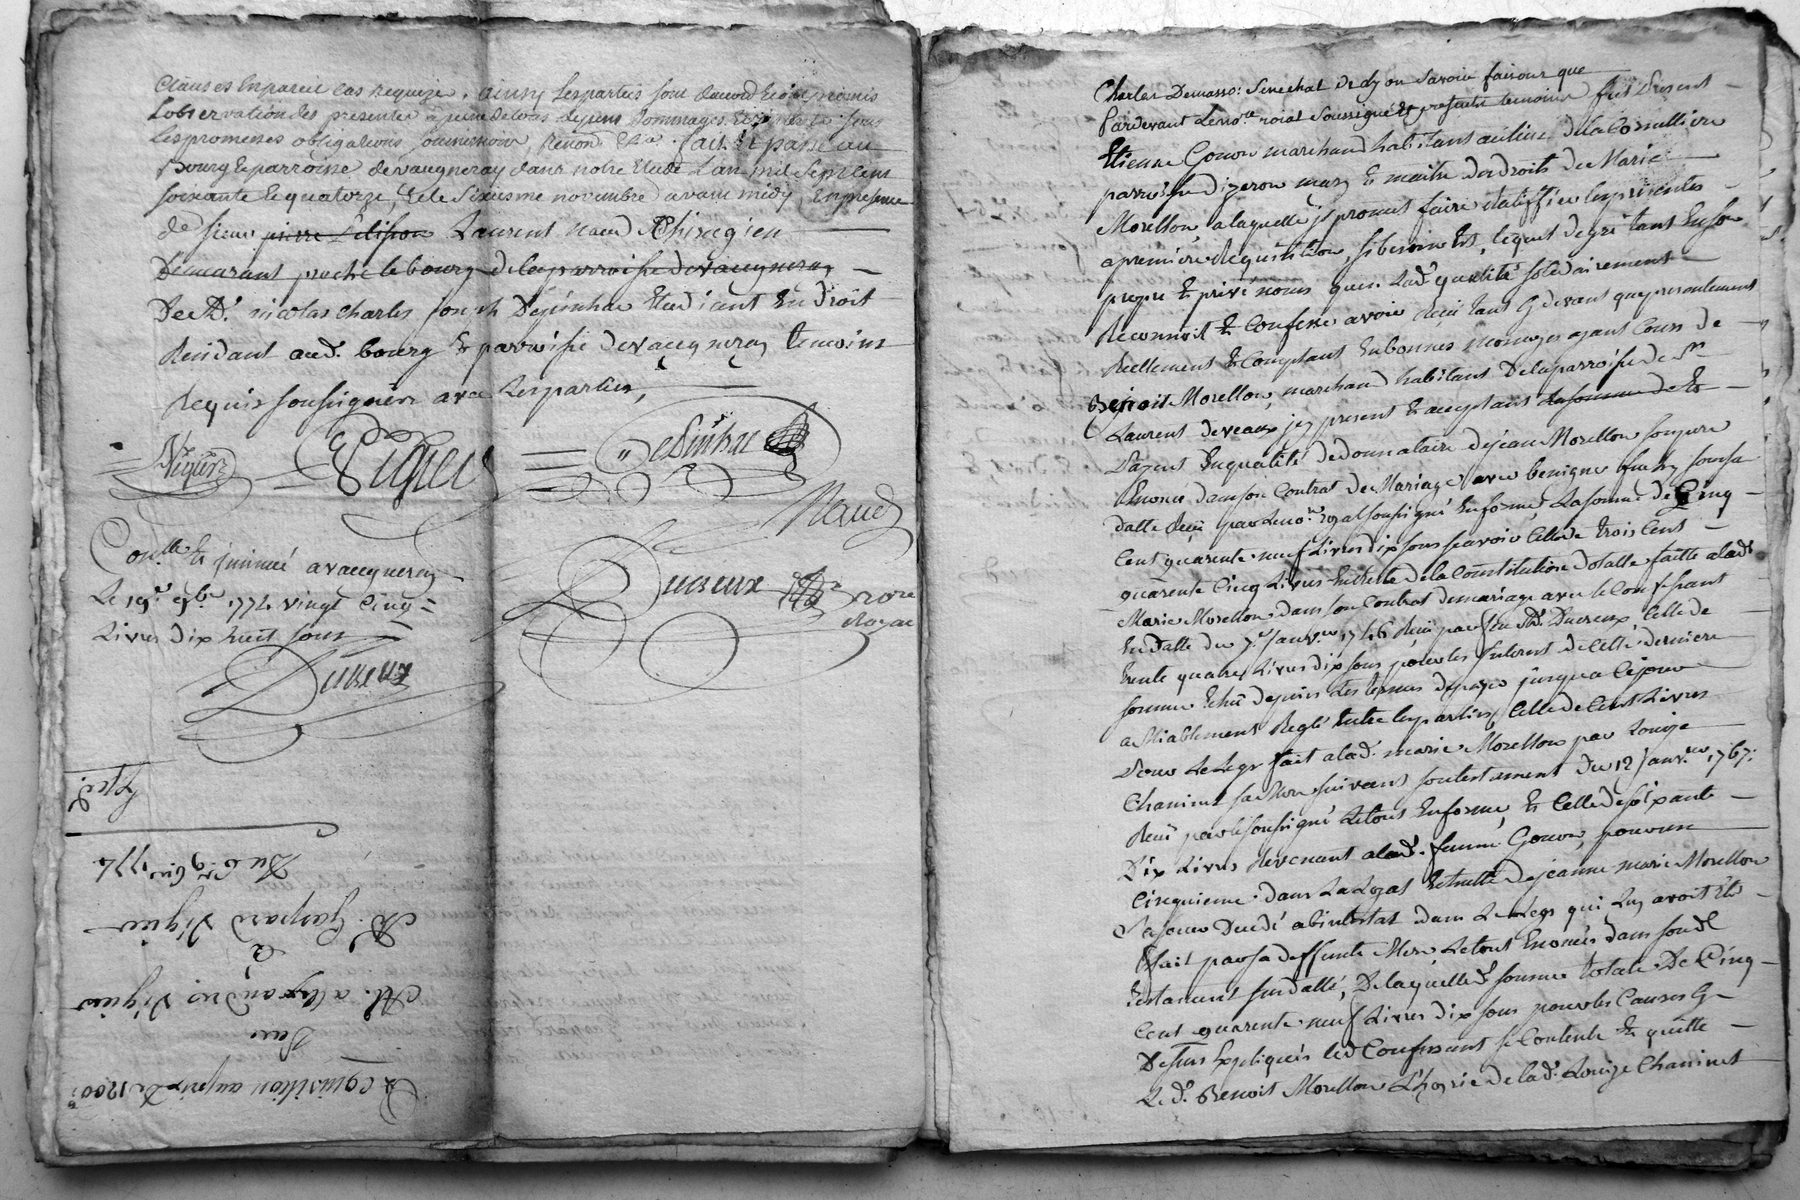 Clauses En pareil cas requize. ainsy Les parties sont d'accord Et ont promis
L'observation des presentes a peine de tous depens dommages Et
Les promesses obligations soumissions, Renon. Et ca. fait Et passé au
Bourg Et parroisse de vaugneray dans notre Etude L'an mil Sept Cent
soixante Et quatorze, & Le Sixieme novembre avant midy, En presence
de sieur pierre Laurent Naud Chirurgien
Demeurant proche le bourg de la parroisse de vaugneray
De Sr. nicolas Charles Joseph Desinthue Etudiant En droit
Residant aud. bourg & parroisse de vaugneray temoins
Requis soussignés avec Les parties,
Vigier Vigier Desinthue
Naud
Conlle & jnsinué a vaugneray
Le 19e. 9bre 1774 vingt Cinq
Livres dix huit sous
Ducreux
Ducreux nore
Royal
Exped.
Du 6e. 9bre 1774
Sr. Gaspard Vigier
a
Sr. alexandre Vigier
Par
Acquisition au prix de 1200 #
Charles Demasso: Senechal de Lyon Savoir faisons que
Pardevant Le nore. roial Soussigné & presents temoins fut Present
Etienne Gouon marchand habitant au lieu de la Cornilliere
parroisse d'izeron mary & maitre des droits de Marie
Morellon, a laquelle jl promet faire Ratiffier les presentes
a premiere Requisition, si besoin Est, lequel de gré tant En son
propre & privé nom que. Lad. qualité solidairement
Reconnoit & Confesse avoir Reçu tant Cy devant que presentement
Reellement & Comptant En bonnes monnoyes ayant Cours de
Benoit Morellon, marchand habitant De la parroisse de St.
Laurent de veaux jcy present & acceptant la somme de &
Payant En qualité de donnataire de jean Morellon son pere
Enoncé dans son Contrat de Mariage avec benigne
datte Reçu par Le nore. royal soussigné En forme, La somme de Cinq
Cent quarente neuf Livres dix sous scavoir Celle de trois Cent
quarente Cinq Livres En Reste de la Constitution dotalle faitte a lad.
Marie Morellon dans son Contrat de mariage avec le Confessant
En datte du 7e. Janvier 1746 Reçu par feu Me. Ducreux, Celle de
trente quatre Livres dix sous pour les jnterest de Cette derniere
somme Echu depuis Les termes de payer jusqu'a Ce jour
a Miablement Reglé Entre les parties, Celle de Cent Livres
Pour Le Legs fait a lad. marie Morellon par Louize
Chaninet sa Mere suivant son testament Du 12 Janvier 1767.
Reçu par le soussigné Le tout En forme, & Celle de soixante
Dix Livres Revenant a lad. femme Gouon, pour un
Cinquieme dans La Legat de jeanne marie Morellon
Sa soeur Decedé abintestat dans Le Legs qui Luy avoit Eté
fait par sa deffunte Mere Le tout Enoncés dans son d.
testament sus datté, De laquelle d. somme totale De Cinq
Cent quarente neuf Livres dix sous pour les Causes Cy
Dessus Expliquées led. Confessant se Contente & quitte
Le d. Benoit Morellon L'hoyrie de lad. Louize Chaninet